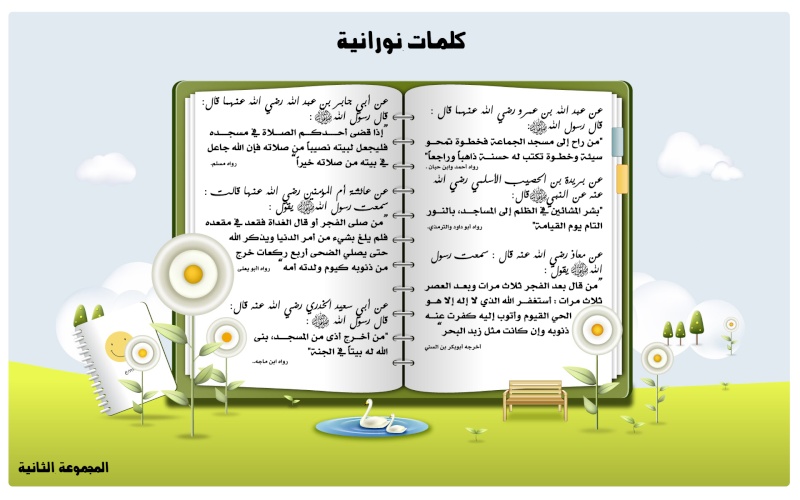 كلمات نورانية
عن عبد الله بن عمرو رضي الله عنهما قال :
قال رسول الله ﷺ:
"من راح إلى مسجد الجماعة فخطوة تمحو
سيئة وخطوة تكتب له حسنة ذاهباً وراجعاً"
رواه أحمد وابن حبان.
عن بريدة بن الحصيب الأسلمي رضي الله
عنه عن النبي ﷺ قال:
"بشر المشائين في الظلم إلى المساجد، بالنور
التام يوم القيامة" رواه أبو داود والترمذي.
عن معاذ رضي الله عنه قال : سمعت رسول
الله ﷺ يقول :
"من قال بعد الفجر ثلاث مرات وبعد العصر
ثلاث مرات : أستغفر الله الذي لا إله إلا هو
الحي القيوم وأتوب إليه كفرت عنه
ذنوبه وإن كانت مثل زبد البحر"
أخرجه أبوبكر بن السني
عن أبي جابر بن عبد الله رضي الله عنهما قال:
قال رسول الله ﷺ :
"إذا قضى أحدكم الصلاة في مسجده
فليجعل لبيته نصيباً من صلاته فإن الله جاعل
في بيته من صلاته خيراً" رواه مسلم.
عن عائشة أم المؤمنين رضي الله عنها قالت :
سمعت رسول الله ﷺ يقول :
"من صلى الفجر أو قال الغداة فقعد في مقعده
فلم يلغ بشيء من أمر الدنيا ويذكر الله
حتى يصلي الضحى أربع ركعات خرج
من ذنوبه كيوم ولدته أمه" رواه أبو يعلى
عن أبي سعيد الخدري رضي الله عنه قال:
قال رسول الله ﷺ :
"من أخرج أذى من المسجد، بنى
الله له بيتاً في الجنة"
رواه ابن ماجه.
المجموعة الثانية